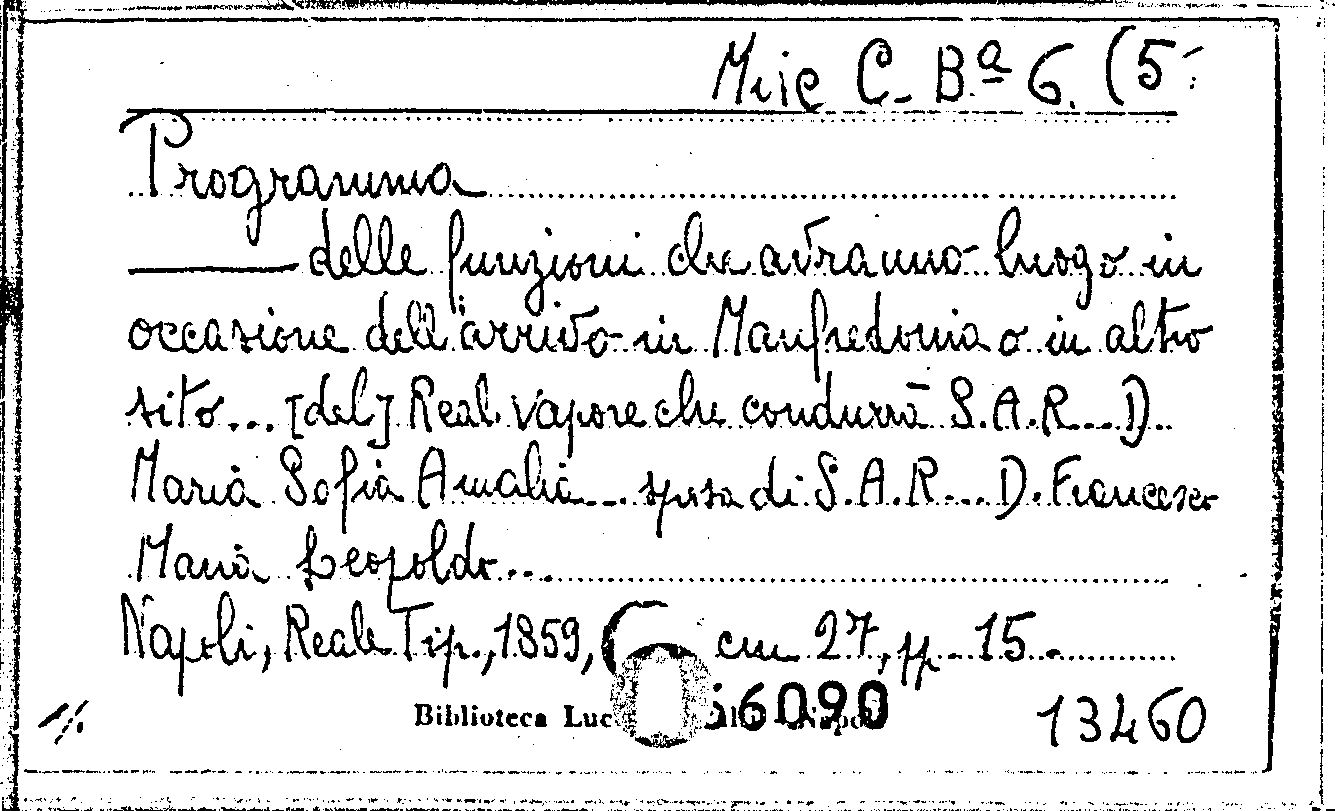 C. Bª 6. (5
Programma
delle funzioni che avranno luogo in
occasione dell'arrivo in Manfredonia o in altro
sito... [del] Real vapore che condurrà S.A.R... D.
Maria Sofia Amalia... sposa di S.A.R... D. Francesco
Maria Leopoldo...
Napoli, Reale Tip., 1859, cm 27, pp. 15.
Biblioteca 6090 13460